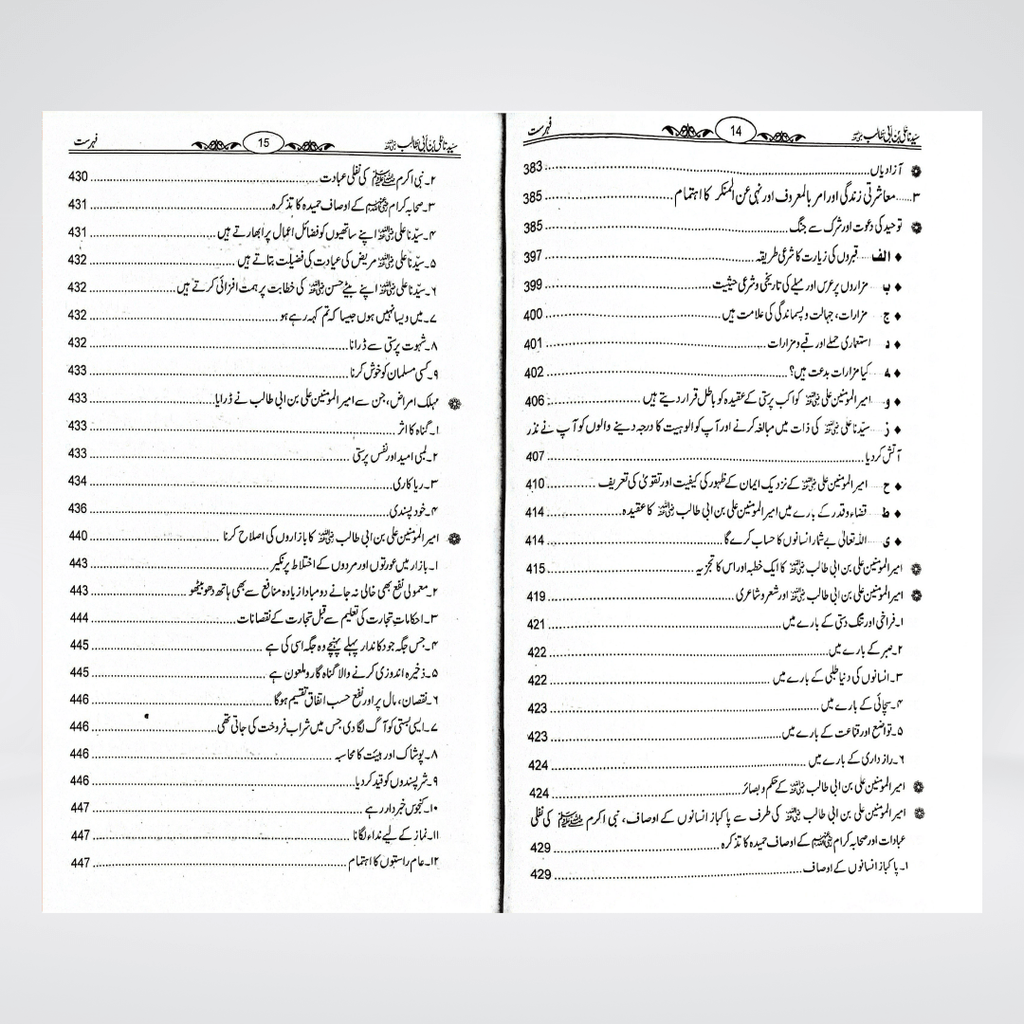 سیدنا علی بن ابی طالب رضی اللہ عنہ 14 فہرست
آزادیاں 383
۳..... معاشرتی زندگی اور امر بالمعروف اور نہی عن المنکر کا اہتمام 385
توحید کی دعوت اور شرک سے جنگ 385
♦ الف قبروں کی زیارت کا شرعی طریقہ 397
♦ ب مزاروں پر عرس اور میلے کی تاریخی و شرعی حیثیت 399
♦ ج مزارات، جہالت و پسماندگی کی علامت ہیں 400
♦ د استعماری حملے اور قبے و مزارات 401
♦ ہ کیا مزارات بدعت ہیں؟ 402
♦ و امیر المومنین علی رضی اللہ عنہ کواکب پرستی کے عقیدہ کو باطل قرار دیتے ہیں 406
♦ ز سیدنا علی رضی اللہ عنہ کی ذات میں مبالغہ کرنے اور آپ کو الوہیت کا درجہ دینے والوں کو آپ نے نذر
آتش کر دیا 407
♦ ح امیر المومنین علی رضی اللہ عنہ کے نزدیک ایمان کے ظہور کی کیفیت اور تقویٰ کی تعریف 410
♦ ط قضاء و قدر کے بارے میں امیر المومنین علی بن ابی طالب رضی اللہ عنہ کا عقیدہ 414
♦ ی اللہ تعالیٰ بے شمار انسانوں کا حساب کرے گا 414
امیر المومنین علی بن ابی طالب رضی اللہ عنہ کا ایک خطبہ اور اس کا تجزیہ 415
امیر المومنین علی بن ابی طالب رضی اللہ عنہ اور شعر و شاعری 419
۱۔ فراخی اور تنگ دستی کے بارے میں 421
۲۔ صبر کے بارے میں 422
۳۔ انسانوں کی دنیا طلبی کے بارے میں 422
۴۔ سچائی کے بارے میں 423
۵۔ تواضع اور قناعت کے بارے میں 423
۶۔ رازداری کے بارے میں 424
امیر المومنین علی بن ابی طالب رضی اللہ عنہ کے حکم و بصائر 424
امیر المومنین علی بن ابی طالب رضی اللہ عنہ کی طرف سے پاکباز انسانوں کے اوصاف، نبی اکرم ﷺ کی نفلی
عبادات اور صحابہ کرام رضی اللہ عنہم کے اوصاف حمیدہ کا تذکرہ 429
۱۔ پاکباز انسانوں کے اوصاف 429
سیدنا علی بن ابی طالب رضی اللہ عنہ 15 فہرست
۲۔ نبی اکرم ﷺ کی نفلی عبادت 430
۳۔ صحابہ کرام رضی اللہ عنہم کے اوصاف حمیدہ کا تذکرہ 431
۴۔ سیّدنا علی رضی اللہ عنہ اپنے ساتھیوں کو فضائل اعمال پر ابھارتے ہیں 431
۵۔ سیّدنا علی رضی اللہ عنہ مریض کی عیادت کی فضیلت بتاتے ہیں 432
۶۔ سیّدنا علی رضی اللہ عنہ اپنے بیٹے حسن رضی اللہ عنہ کی خطابت پر ہمت افزائی کرتے ہیں 432
۷۔ میں ویسا نہیں ہوں جیسا کہ تم کہہ رہے ہو 432
۸۔ شہوت پرستی سے ڈرانا 432
۹۔ کسی مسلمان کو خوش کرنا 433
مہلک امراض، جن سے امیر المومنین علی بن ابی طالب نے ڈرایا 433
۱۔ گناہ کا اثر 433
۲۔ لمبی امید اور نفس پرستی 433
۳۔ ریا کاری 434
۴۔ خود پسندی 436
امیر المومنین علی بن ابی طالب رضی اللہ عنہ کا بازاروں کی اصلاح کرنا 440
۱۔ بازار میں عورتوں اور مردوں کے اختلاط پر نکیر 443
۲۔ معمولی نفع بھی خالی نہ جانے دو مبادا زیادہ منافع سے بھی ہاتھ دھو بیٹھو 443
۳۔ احکامات تجارت کی تعلیم سے قبل تجارت کے نقصانات 444
۴۔ جس جگہ جو دکاندار پہلے پہنچے وہ جگہ اسی کی ہے 445
۵۔ ذخیرہ اندوزی کرنے والا گناہ گار و ملعون ہے 445
۶۔ نقصان، مال پر اور نفع حسب اتفاق تقسیم ہوگا 446
۷۔ ایسی بستی کو آگ لگا دی جس میں شراب فروخت کی جاتی تھی 446
۸۔ پوشاک اور ہیئت کا محاسبہ 446
۹۔ شر پسندوں کو قید کر دیا 446
۱۰۔ کنجوس خبردار رہے 447
۱۱۔ نماز کے لیے نداء لگانا 447
۱۲۔ عام راستوں کا اہتمام 447